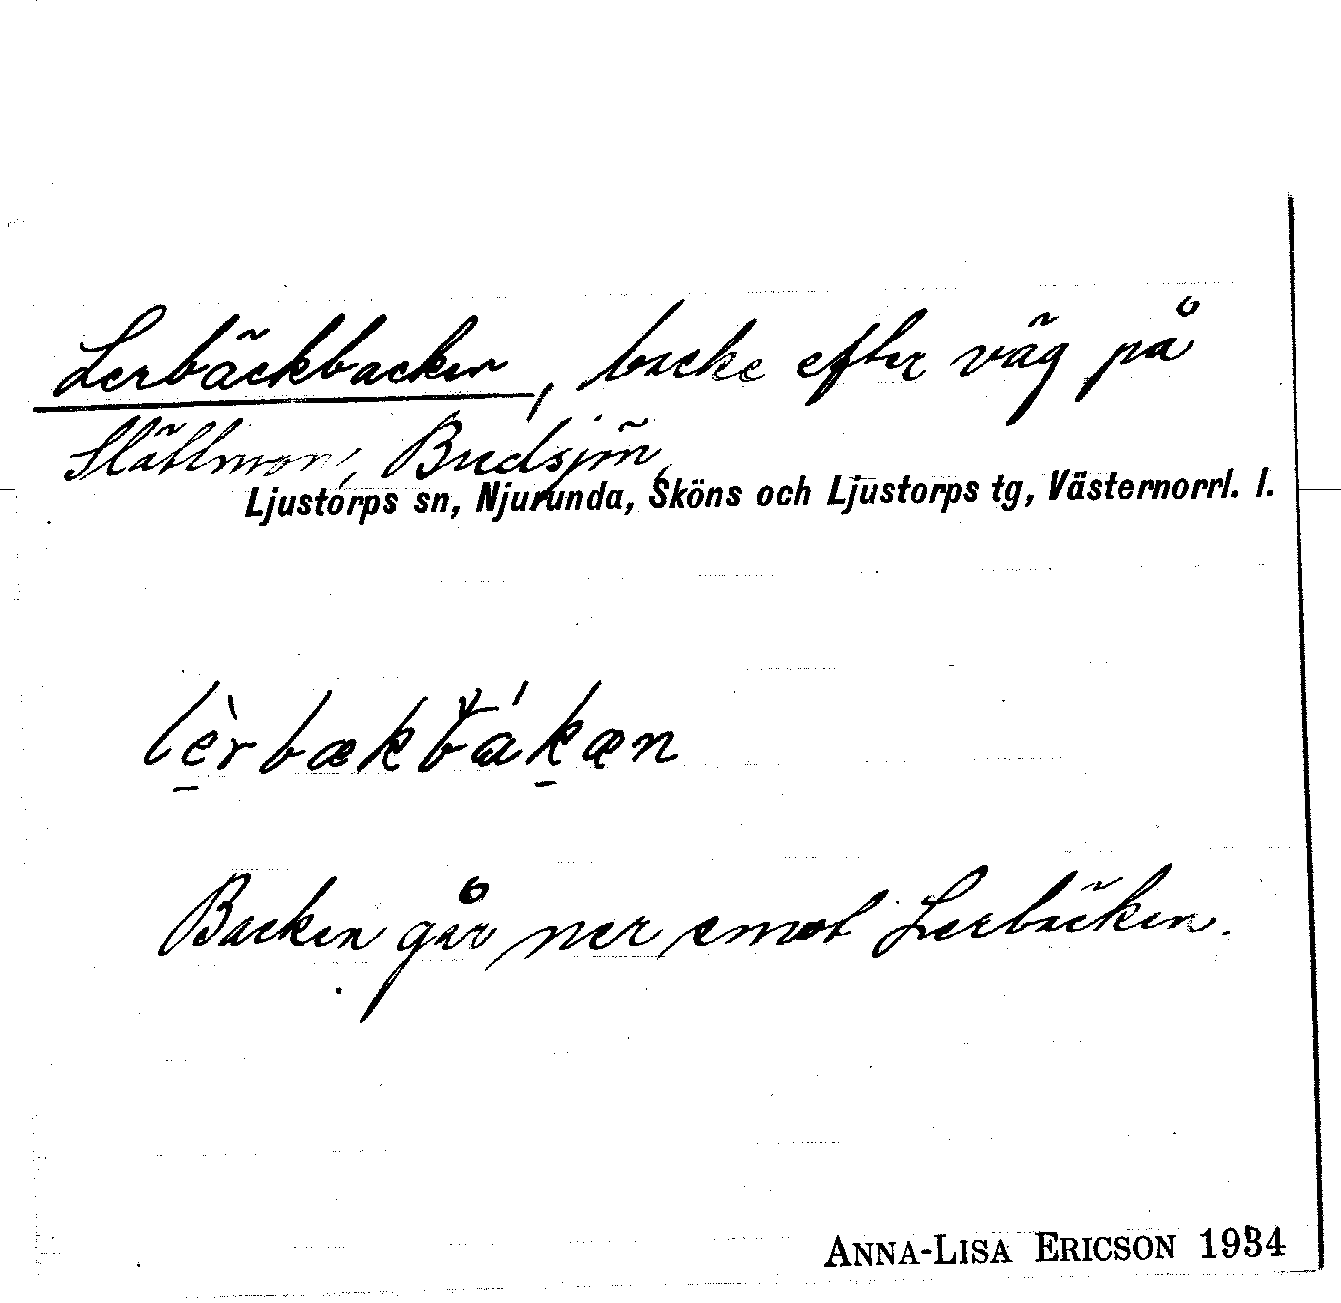 Lerbäckbacken, backe efter väg på
Slättmon, Bredsjön,
Ljustorps sn, Njurunda, Sköns och Ljustorps tg, Västernorrl. l.
lèrbækbákæn
Backen går ner emot Lerbäcken.
ANNA-LISA ERICSON 1934